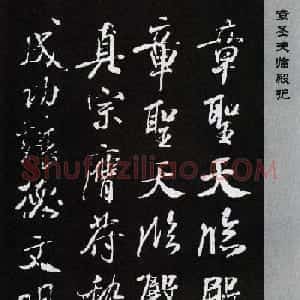 章圣天临殿记
章聖天臨殿
章聖天臨殿
真宗膺符稽
成功讓德文明
Shufaziliao.com